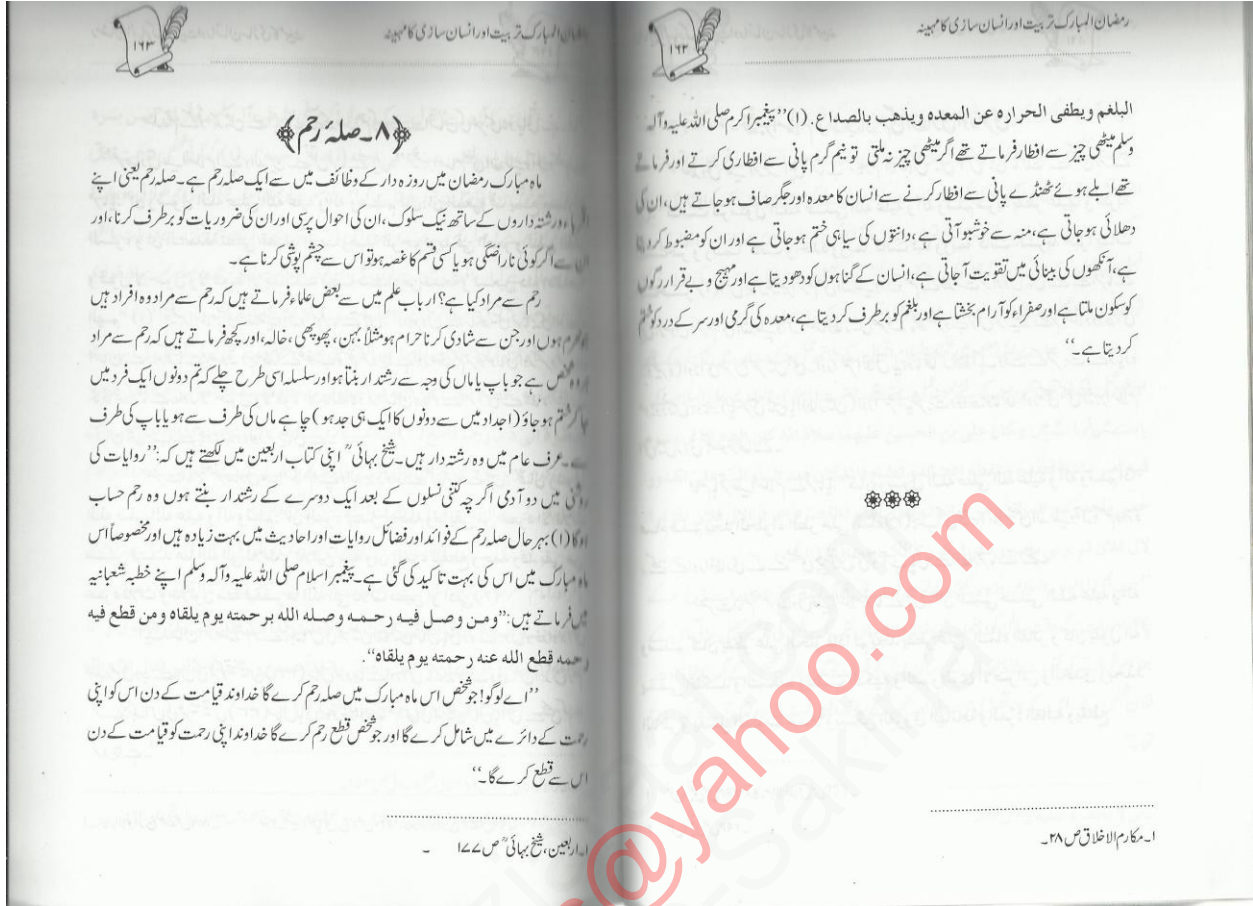 رمضان المبارک تربیت اور انسان سازی کا مہینہ
۱۶۲
البلغم ویطفی الحرارہ عن المعدہ ویذهب بالصداع. (۱)’’پیغمبر اکرم صلی اللہ علیہ وآلہ
وسلم میٹھی چیز سے افطار فرماتے تھے اگر میٹھی چیز نہ ملتی تو نیم گرم پانی سے افطاری کرتے اور فرماتے
تھے ابلے ہوئے ٹھنڈے پانی سے افطار کرنے سے انسان کا معدہ اور جگر صاف ہوجاتے ہیں، ان کی
دھلائی ہوجاتی ہے، منہ سے خوشبو آتی ہے، دانتوں کی سیاہی ختم ہوجاتی ہے اور ان کو مضبوط کردیتا
ہے، آنکھوں کی بینائی میں تقویت آجاتی ہے، انسان کے گناہوں کو دھودیتا ہے اور مہیج و بے قرار رگوں
کو سکون ملتا ہے اور صفراء کو آرام بخشتا ہے اور بلغم کو برطرف کردیتا ہے، معدہ کی گرمی اور سر کے درد کو ختم
کردیتا ہے۔‘‘
۱۔مکارم الاخلاق ص ۲۸۔
رمضان المبارک تربیت اور انسان سازی کا مہینہ
۱۶۳
﴿۸۔صلۂ رحم﴾
ماہ مبارک رمضان میں روزہ دار کے وظائف میں سے ایک صلہ رحم ہے۔صلہ رحم یعنی اپنے
اقرباء ورشتہ داروں کے ساتھ نیک سلوک، ان کی احوال پرسی اور ان کی ضروریات کو برطرف کرنا، اور
ان سے اگر کوئی ناراضگی ہو یا کسی قسم کا غصہ ہو تو اس سے چشم پوشی کرنا ہے۔
رحم سے مراد کیا ہے؟ ارباب علم میں سے بعض علماء فرماتے ہیں کہ رحم سے مراد وہ افراد ہیں
جو محرم ہوں اور جن سے شادی کرنا حرام ہو مثلاً بہن، پھوپھی، خالہ، اور کچھ فرماتے ہیں کہ رحم سے مراد
ہر وہ شخص ہے جو باپ یا ماں کی وجہ سے رشتدار بنتا ہو اور سلسلہ اسی طرح چلے کہ تم دونوں ایک فرد میں
جا کر ختم ہوجاؤ (اجداد میں سے دونوں کا ایک ہی جد ہو) چاہے ماں کی طرف سے ہو یا باپ کی طرف
سے۔عرف عام میں وہ رشتہ دار ہیں۔شیخ بہائی ؒ اپنی کتاب اربعین میں لکھتے ہیں کہ:’’روایات کی
روشنی میں دو آدمی اگر چہ کتنی نسلوں کے بعد ایک دوسرے کے رشتدار بنتے ہوں وہ رحم حساب
ہوگا (۱) بہرحال صلہ رحم کے فوائد اور فضائل روایات اور احادیث میں بہت زیادہ ہیں اور مخصوصاً اس
ماہ مبارک میں اس کی بہت تاکید کی گئی ہے۔پیغمبر اسلام صلی اللہ علیہ وآلہ وسلم اپنے خطبہ شعبانیہ
میں فرماتے ہیں:’’ومن وصل فیه رحمه وصله الله برحمته یوم یلقاه ومن قطع فیه
رحمه قطع الله عنه رحمته یوم یلقاه‘‘.
’’اے لوگو! جو شخص اس ماہ مبارک میں صلہ رحم کرے گا خداوند قیامت کے دن اس کو اپنی
رحمت کے دائرے میں شامل کرے گا اور جو شخص قطع رحم کرے گا خداوند اپنی رحمت کو قیامت کے دن
اس سے قطع کرے گا۔‘‘
۱۔اربعین، شیخ بہائی ؒ ص ۱۷۷ ۔
@yahoo.com